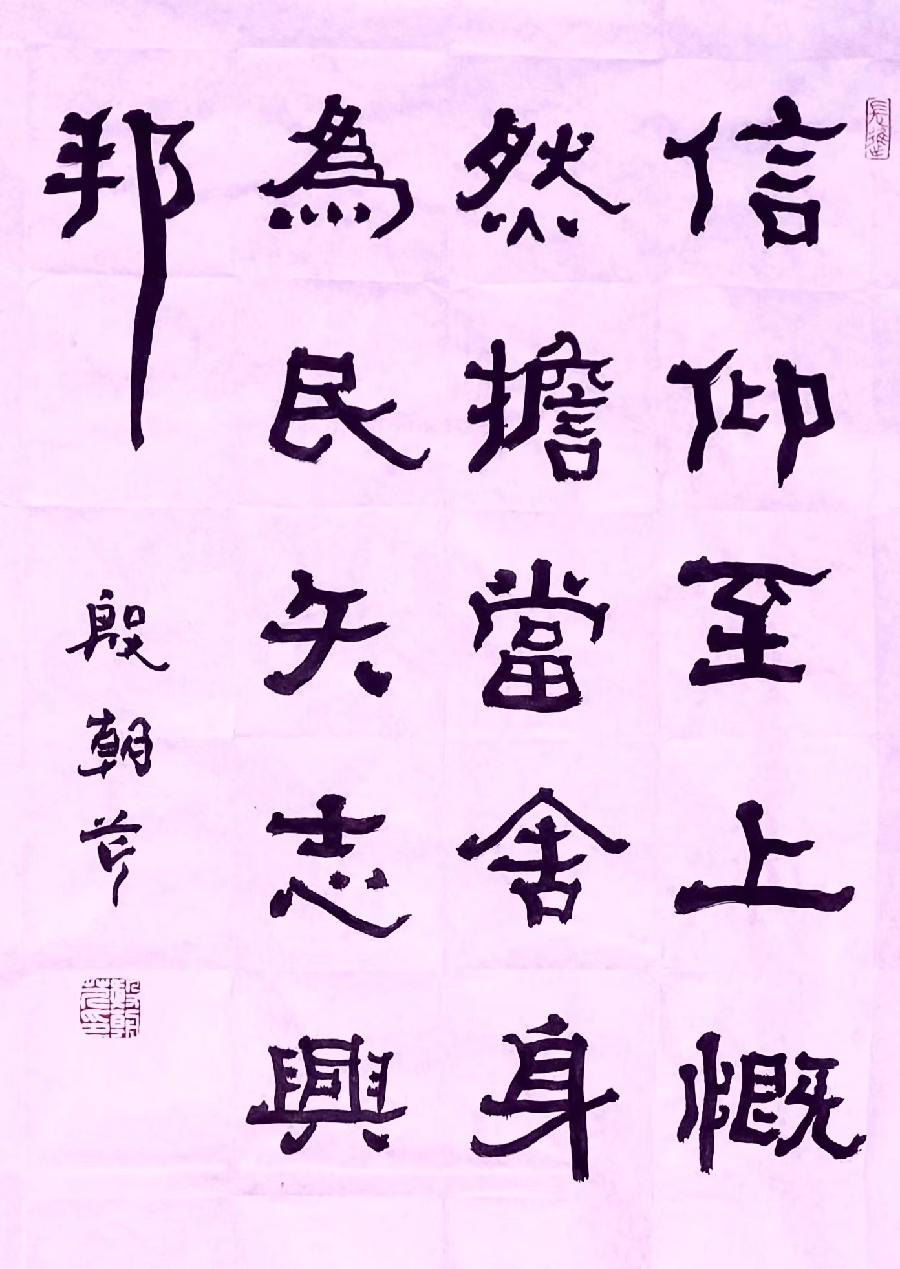 信仰至上慨
然擔當舍身
為民矢志興
邦
殷朝芹